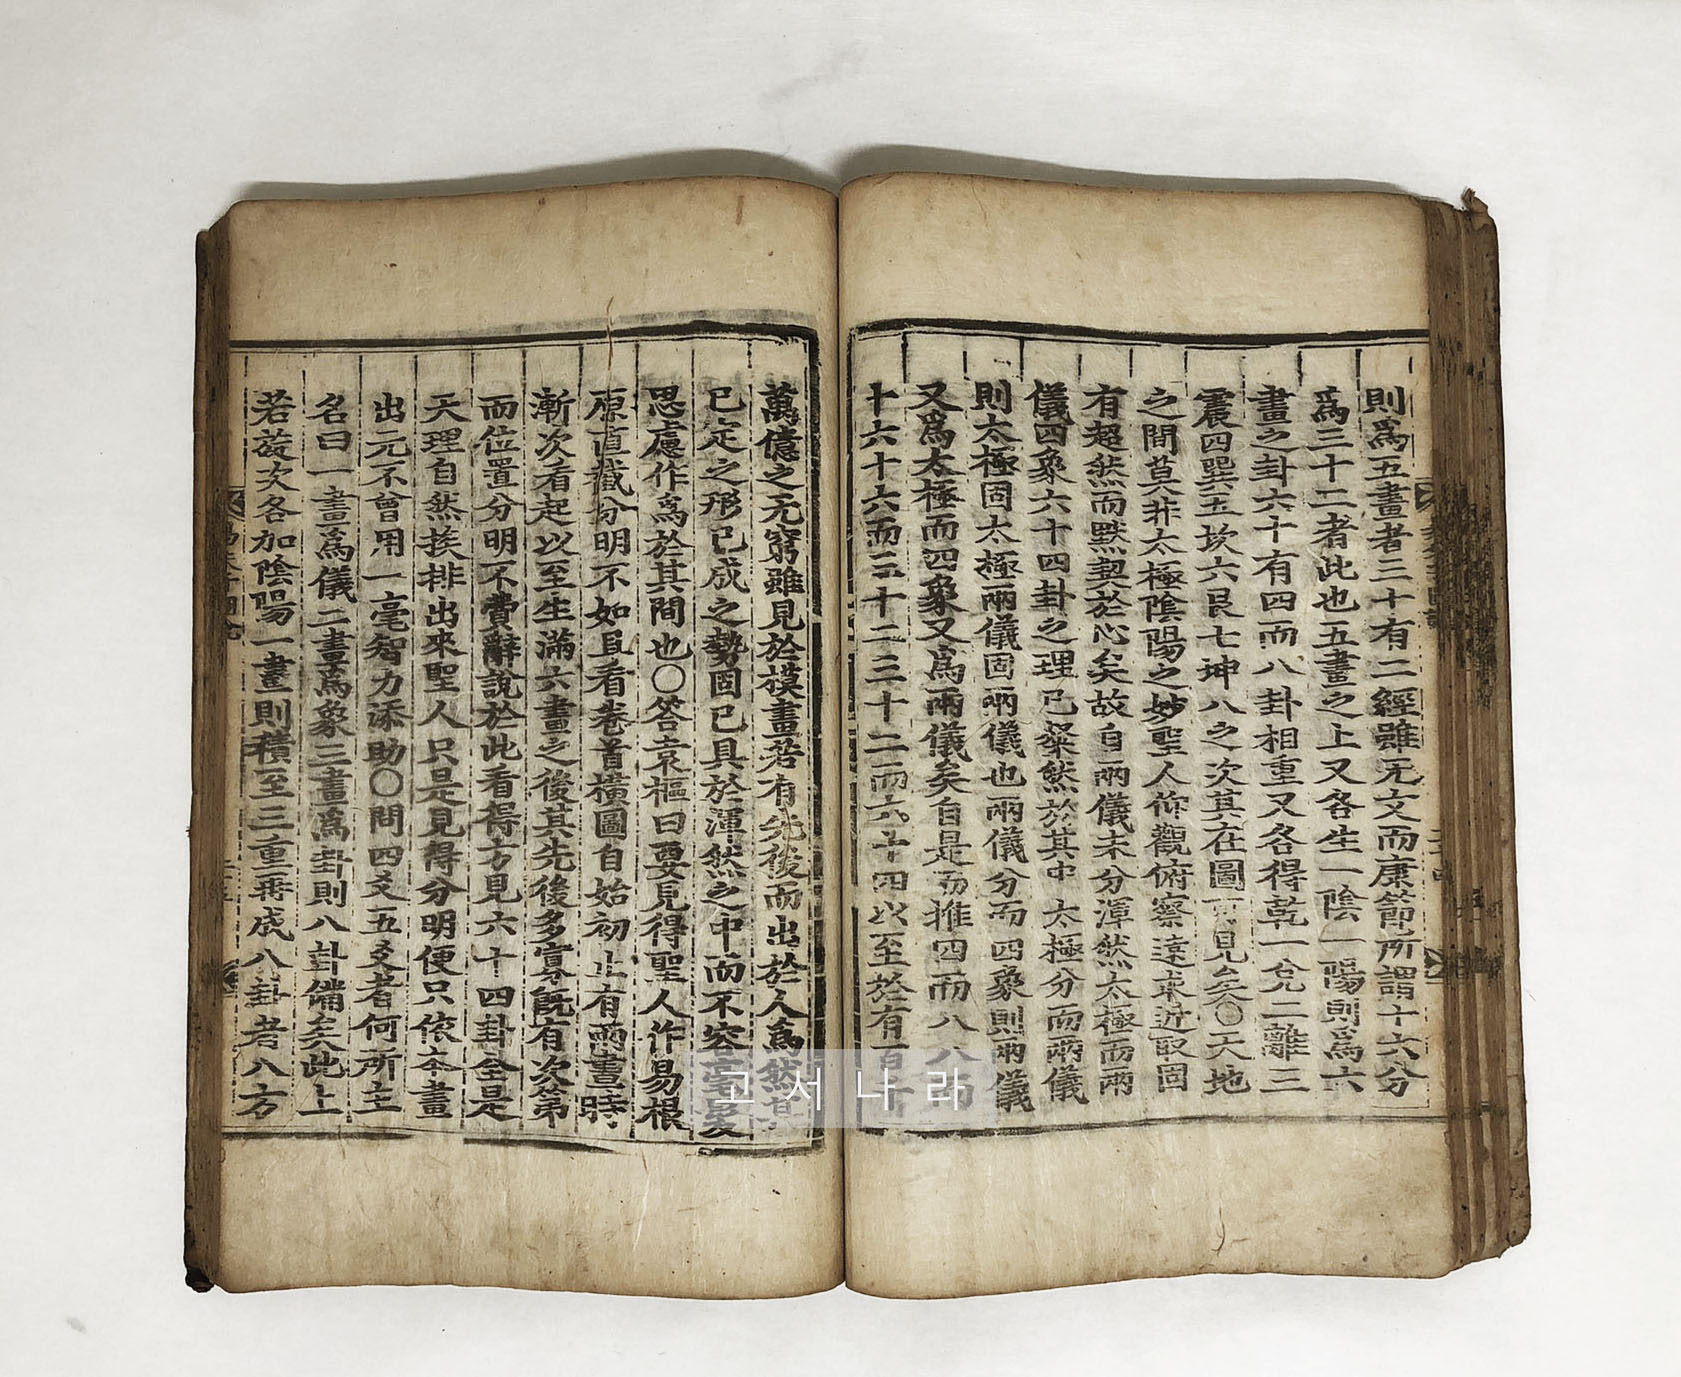 則爲五畫者三十有二經雖无文而康節所謂十六分
爲三十二者此也五畫之上又各生一陰一陽則爲六
畫之卦六十有四而八卦相重又各得乾一兌二離三
震四巽五坎六艮七坤八之次其在圖可見矣○天地
之間莫非太極陰陽之妙聖人仰觀俯察遠求近取固
有超然而默契於心矣故自兩儀未分渾然太極而兩
儀四象六十四卦之理已粲然於其中太極分而兩儀
則太極固太極兩儀固兩儀也兩儀分而四象則兩儀
又爲太極而四象又爲兩儀矣自是而推四而八八而
十六十六而三十二三十二而六十四以至於有百千
萬億之无窮雖見於摸畫若有先後而出於人爲然其
已定之形已成之勢固已具於渾然之中而不容毫髮
思慮作爲於其間也○答袁樞曰要見得聖人作易根
原直截分明不如且看卷首橫圖自始初止有兩畫時
漸次看起以至生滿六畫之後其先後多寡旣有次第
而位置分明不費辭說於此看得方見六十四卦全是
天理自然挨排出來聖人只是見得分明便只依本畫
出元不曾用一毫智力添助○問四爻五爻者何所主
名曰一畫爲儀二畫爲象三畫爲卦則八卦備矣此上
若旋次各加陰陽一畫則積至三重再成八卦者八方
고서나라